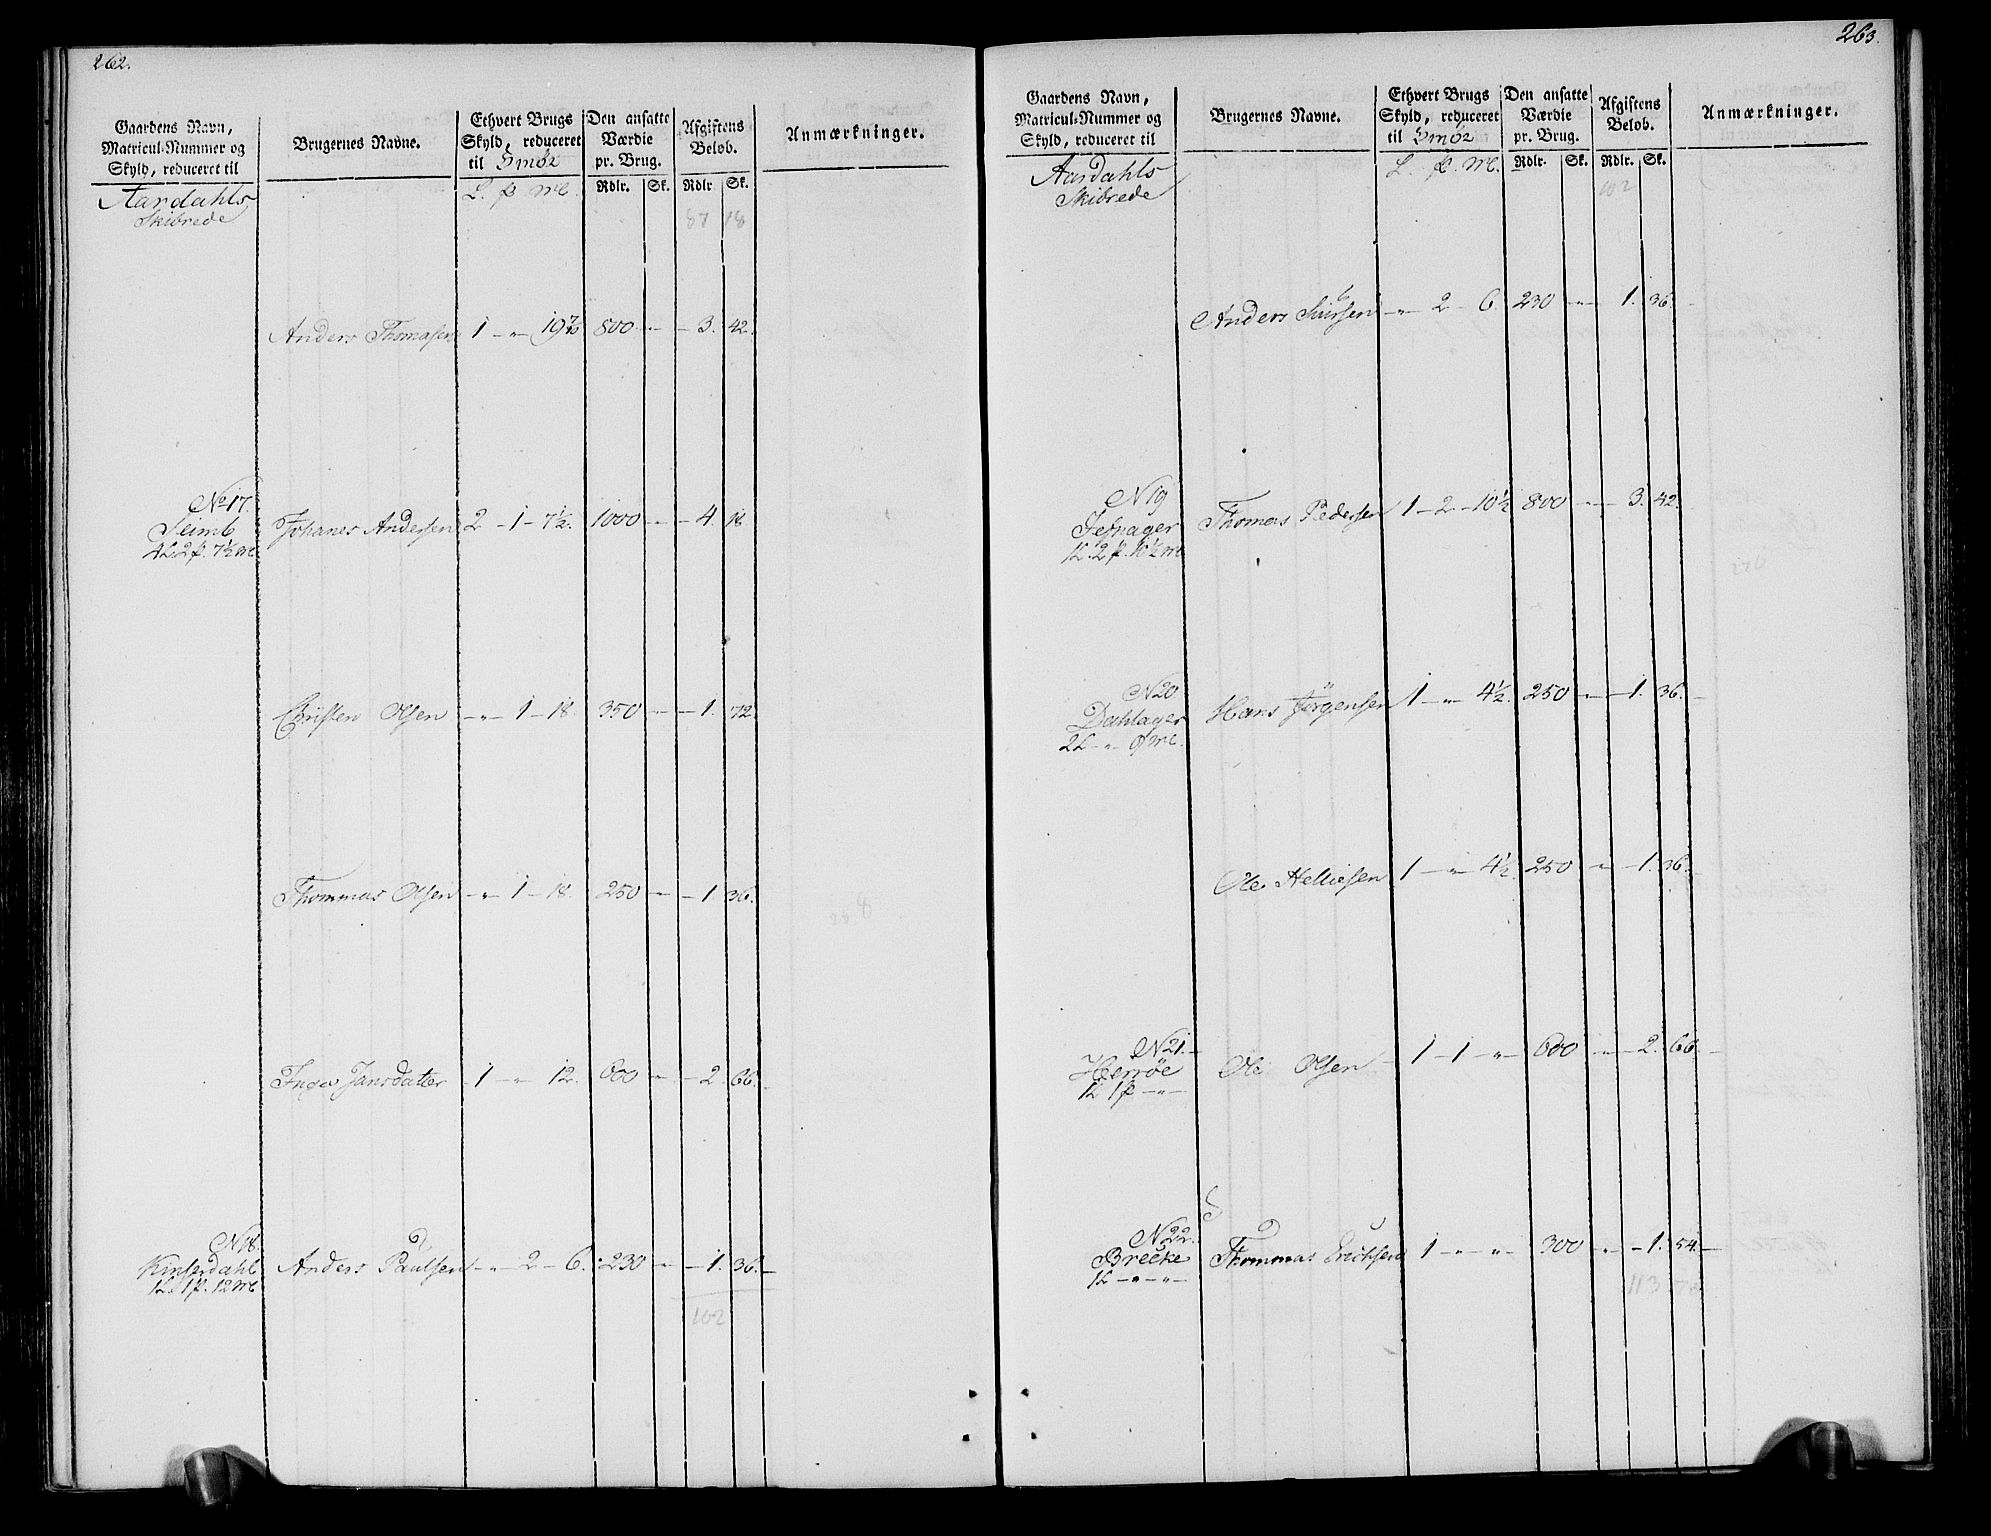 262.
Gaardens Navn, Matricul-Nummer og Skyld, reduceret til
Brugernes Navne.
Ethvert Brugs Skyld, reduceret til Smör
Den ansatte Værdie pr. Brug.
Afgiftens Beløb.
Anmærkninger.
L. p mk. Rdlr. Sk. Rdlr. Sk.
Aardahls
Skibrede
87 18
Anders Thomasen 1 - " - 19 7/10 800 - " - 3. 42.
No 17.
Seimb Johanes Andersen 2 - 1 - 7 1/2. 1000 - " - 4. 18
4L. 2p. 7 1/2 mk
Christen Olsen - " - 1 - 18. 350 - " - 1. 72.
Thommas Olsen - " - 1 - 18. 250 - " - 1. 36.
Inger Jansdatter 1 - " - 12. 600 - " - 2. 66.
N 18.
Kinserdahl Anders Paulsen - " - 2 - 6. 230 - " - 1. 36.
1L. 1p. 12 mk
102
263.
Gaardens Navn, Matricul-Nummer og Skyld, reduceret til
Brugernes Navne.
Ethvert Brugs Skyld, reduceret til Smör
Den ansatte Værdie pr. Brug.
Afgiftens Beløb.
Anmærkninger.
L. p. mk. Rdlr. Sk. Rdlr. Sk.
Aardahls
Skibrede
102
Anders - " - 2 - 6. 230 - " - 1. 36.
N 19
Thomas Pedersen 1 - 2 - 10 1/2 800 - " - 3. 42.
1L. 2p. 10 1/2 mk
N 20
Dahlager Hans Jörgensen 1 - " - 4 1/2. 250 - " - 1. 36.
2L - " - 9 mk.
Ole Helliesen 1 - " - 4 1/2. 250 - " - 1. 36.
N 21.
Herröe Ole Olsen 1 - 1 - " - 600 - " - 2. 66.
1L 1p - " -
N 22.
Brecke Thommas Erichsen 1 - " - " - 300 - " - 1. 54.
1L - " - " -
113